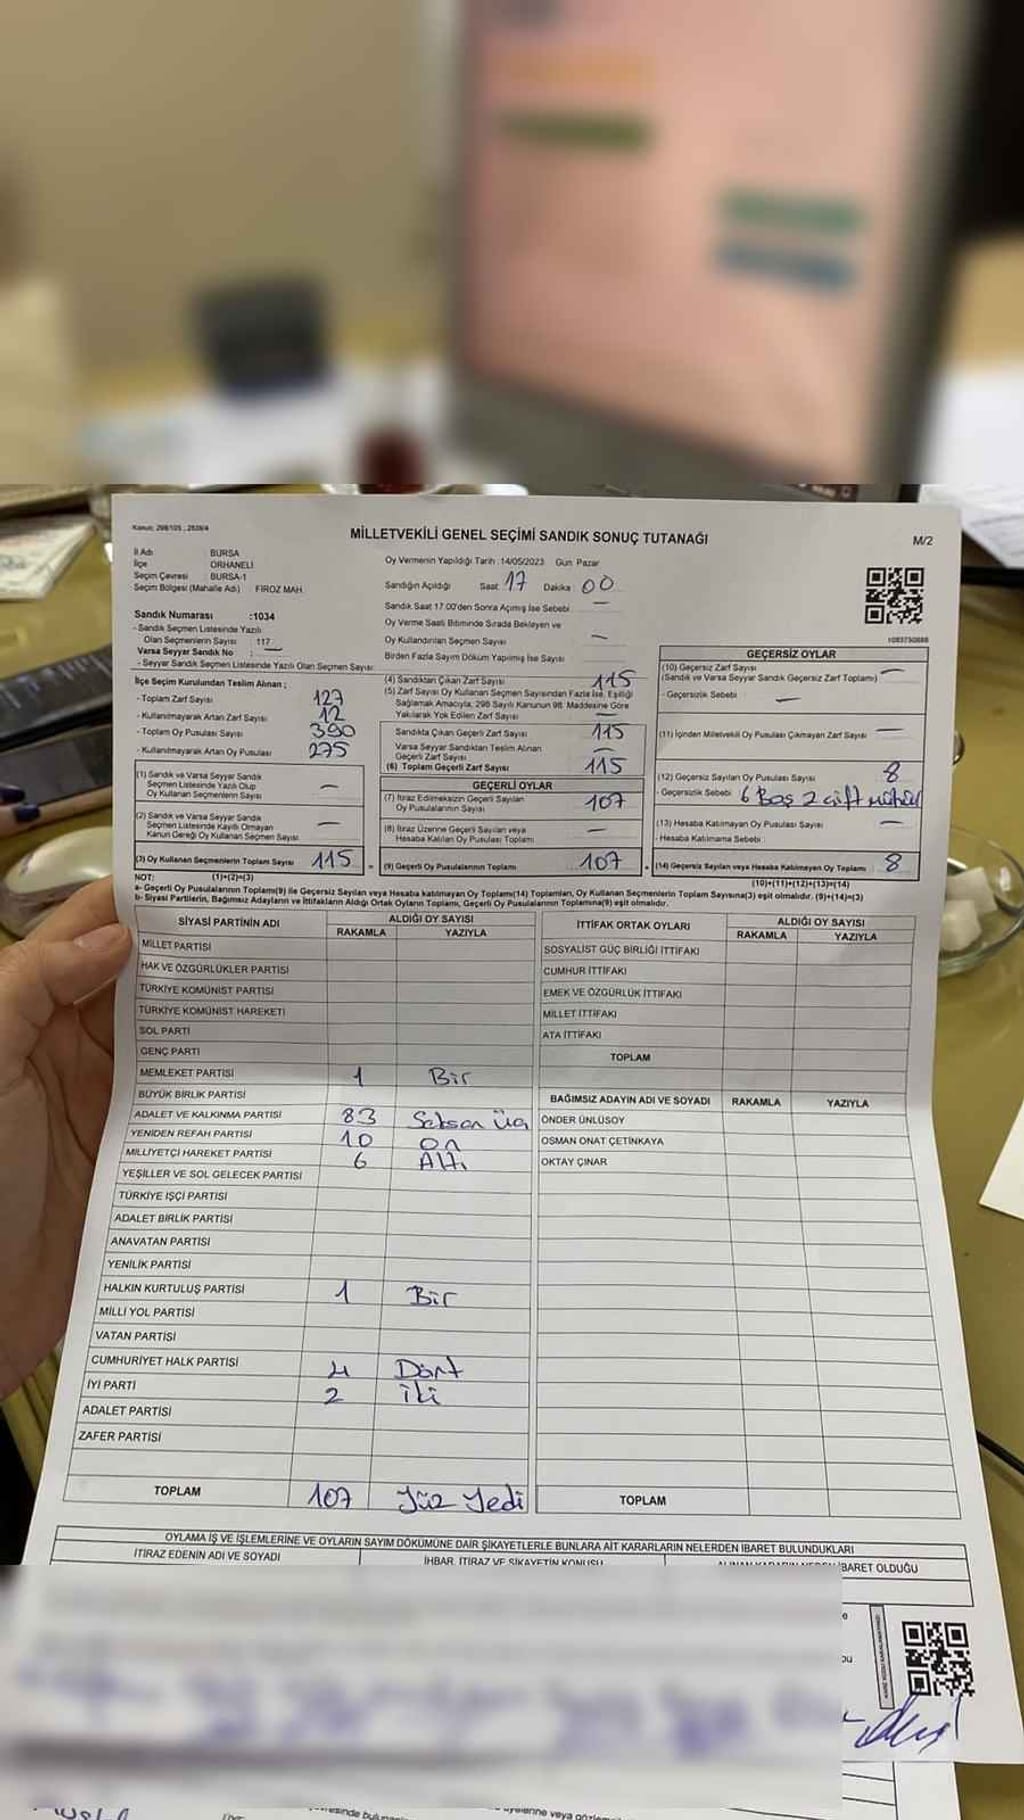 Kanun: 298/105 ; 2839/4
MİLLETVEKİLİ GENEL SEÇİMİ SANDIK SONUÇ TUTANAĞI
M/2
İl Adı BURSA
İlçe ORHANELİ
Seçim Çevresi : BURSA-1
Seçim Bölgesi (Mahalle Adı) FİROZ MAH
Sandık Numarası :1034
- Sandık Seçmen Listesinde Yazılı
Olan Seçmenlerin Sayısı : 117
Varsa Seyyar Sandık No :
- Seyyar Sandık Seçmen Listesinde Yazılı Olan Seçmen Sayısı:
Oy Vermenin Yapıldığı Tarih : 14/05/2023 Gün Pazar
Sandığın Açıldığı Saat: 17 Dakika : 00
Sandık Saat 17:00'den Sonra Açımış İse Sebebi : —
Oy Verme Saati Bitiminde Sırada Bekleyen ve
Oy Kullandırılan Seçmen Sayısı —
Birden Fazla Sayım Döküm Yapılmış İse Sayısı
1083750888
İlçe Seçim Kurulundan Teslim Alınan ;
- Toplam Zarf Sayısı 127
- Kullanılmayarak Artan Zarf Sayısı 12
- Toplam Oy Pusulası Sayısı 390
- Kullanılmayarak Artan Oy Pusulası 275
(1) Sandık ve Varsa Seyyar Sandık
Seçmen Listesinde Yazılı Olup
Oy Kullanan Seçmenlerin Sayısı —
(2) Sandık ve Varsa Seyyar Sandık
Seçmen Listesinde Kayıtlı Olmayan
Kanun Gereği Oy Kullanan Seçmen Sayısı —
(3) Oy Kullanan Seçmenlerin Toplam Sayısı 115
(4) Sandıktan Çıkan Zarf Sayısı 115
(5) Zarf Sayısı Oy Kullanan Seçmen Sayısından Fazla İse, Eşitliği
Sağlamak Amacıyla, 298 Sayılı Kanunun 98. Maddesine Göre
Yakılarak Yok Edilen Zarf Sayısı —
Sandıkta Çıkan Geçerli Zarf Sayısı 115
Varsa Seyyar Sandıktan Teslim Alınan
Geçerli Zarf Sayısı —
(6) Toplam Geçerli Zarf Sayısı 115
GEÇERLİ OYLAR
(7) İtiraz Edilmeksizin Geçerli Sayılan
Oy Pusulalarının Sayısı 107
(8) İtiraz Üzerine Geçerli Sayılan veya
Hesaba Katılan Oy Pusulası Toplamı —
= (9) Geçerli Oy Pusulalarının Toplamı 107
GEÇERSİZ OYLAR
(10) Geçersiz Zarf Sayısı
(Sandık ve Varsa Seyyar Sandık Geçersiz Zarf Toplamı) —
- Geçersizlik Sebebi : —
(11) İçinden Milletvekili Oy Pusulası Çıkmayan Zarf Sayısı —
(12) Geçersiz Sayılan Oy Pusulası Sayısı 8
- Geçersizlik Sebebi : 6 Boş 2 çift mühür
(13) Hesaba Katılmayan Oy Pusulası Sayısı —
- Hesaba Katılmama Sebebi :
(14) Geçersiz Sayılan veya Hesaba Katılmayan Oy Toplamı 8
NOT: (1)+(2)=(3)
(10)+(11)+(12)+(13)=(14)
a- Geçerli Oy Pusulalarının Toplamı(9) ile Geçersiz Sayılan veya Hesaba katılmayan Oy Toplamı(14) Toplamları, Oy Kullanan Seçmenlerin Toplam Sayısına(3) eşit olmalıdır. (9)+(14)=(3)
b- Siyasi Partilerin, Bağımsız Adayların ve İttifakların Aldığı Ortak Oyların Toplamı, Geçerli Oy Pusulalarının Toplamına(9) eşit olmalıdır.
SİYASİ PARTİNİN ADI ALDIĞI OY SAYISI
RAKAMLA YAZIYLA
MİLLET PARTİSİ
HAK VE ÖZGÜRLÜKLER PARTİSİ
TÜRKİYE KOMÜNİST PARTİSİ
TÜRKİYE KOMÜNİST HAREKETİ
SOL PARTİ
GENÇ PARTİ
MEMLEKET PARTİSİ 1 Bir
BÜYÜK BİRLİK PARTİSİ
ADALET VE KALKINMA PARTİSİ 83 Seksen üç
YENİDEN REFAH PARTİSİ 10 On
MİLLİYETÇİ HAREKET PARTİSİ 6 Altı
YEŞİLLER VE SOL GELECEK PARTİSİ
TÜRKİYE İŞÇİ PARTİSİ
ADALET BİRLİK PARTİSİ
ANAVATAN PARTİSİ
YENİLİK PARTİSİ
HALKIN KURTULUŞ PARTİSİ 1 Bir
MİLLİ YOL PARTİSİ
VATAN PARTİSİ
CUMHURİYET HALK PARTİSİ 4 Dört
İYİ PARTİ 2 İki
ADALET PARTİSİ
ZAFER PARTİSİ
TOPLAM 107 Yüz Yedi
İTTİFAK ORTAK OYLARI ALDIĞI OY SAYISI
RAKAMLA YAZIYLA
SOSYALİST GÜÇ BİRLİĞİ İTTİFAKI
CUMHUR İTTİFAKI
EMEK VE ÖZGÜRLÜK İTTİFAKI
MİLLET İTTİFAKI
ATA İTTİFAKI
TOPLAM
BAĞIMSIZ ADAYIN ADI VE SOYADI RAKAMLA YAZIYLA
ÖNDER ÜNLÜSOY
OSMAN ONAT ÇETİNKAYA
OKTAY ÇINAR
TOPLAM
OYLAMA İŞ VE İŞLEMLERİNE VE OYLARIN SAYIM DÖKÜMÜNE DAİR ŞİKAYETLERLE BUNLARA AİT KARARLARIN NELERDEN İBARET BULUNDUKLARI
İTİRAZ EDENİN ADI VE SOYADI İHBAR, İTİRAZ VE ŞİKAYETİN KONUSU ALINAN KARARIN NEDEN İBARET OLDUĞU